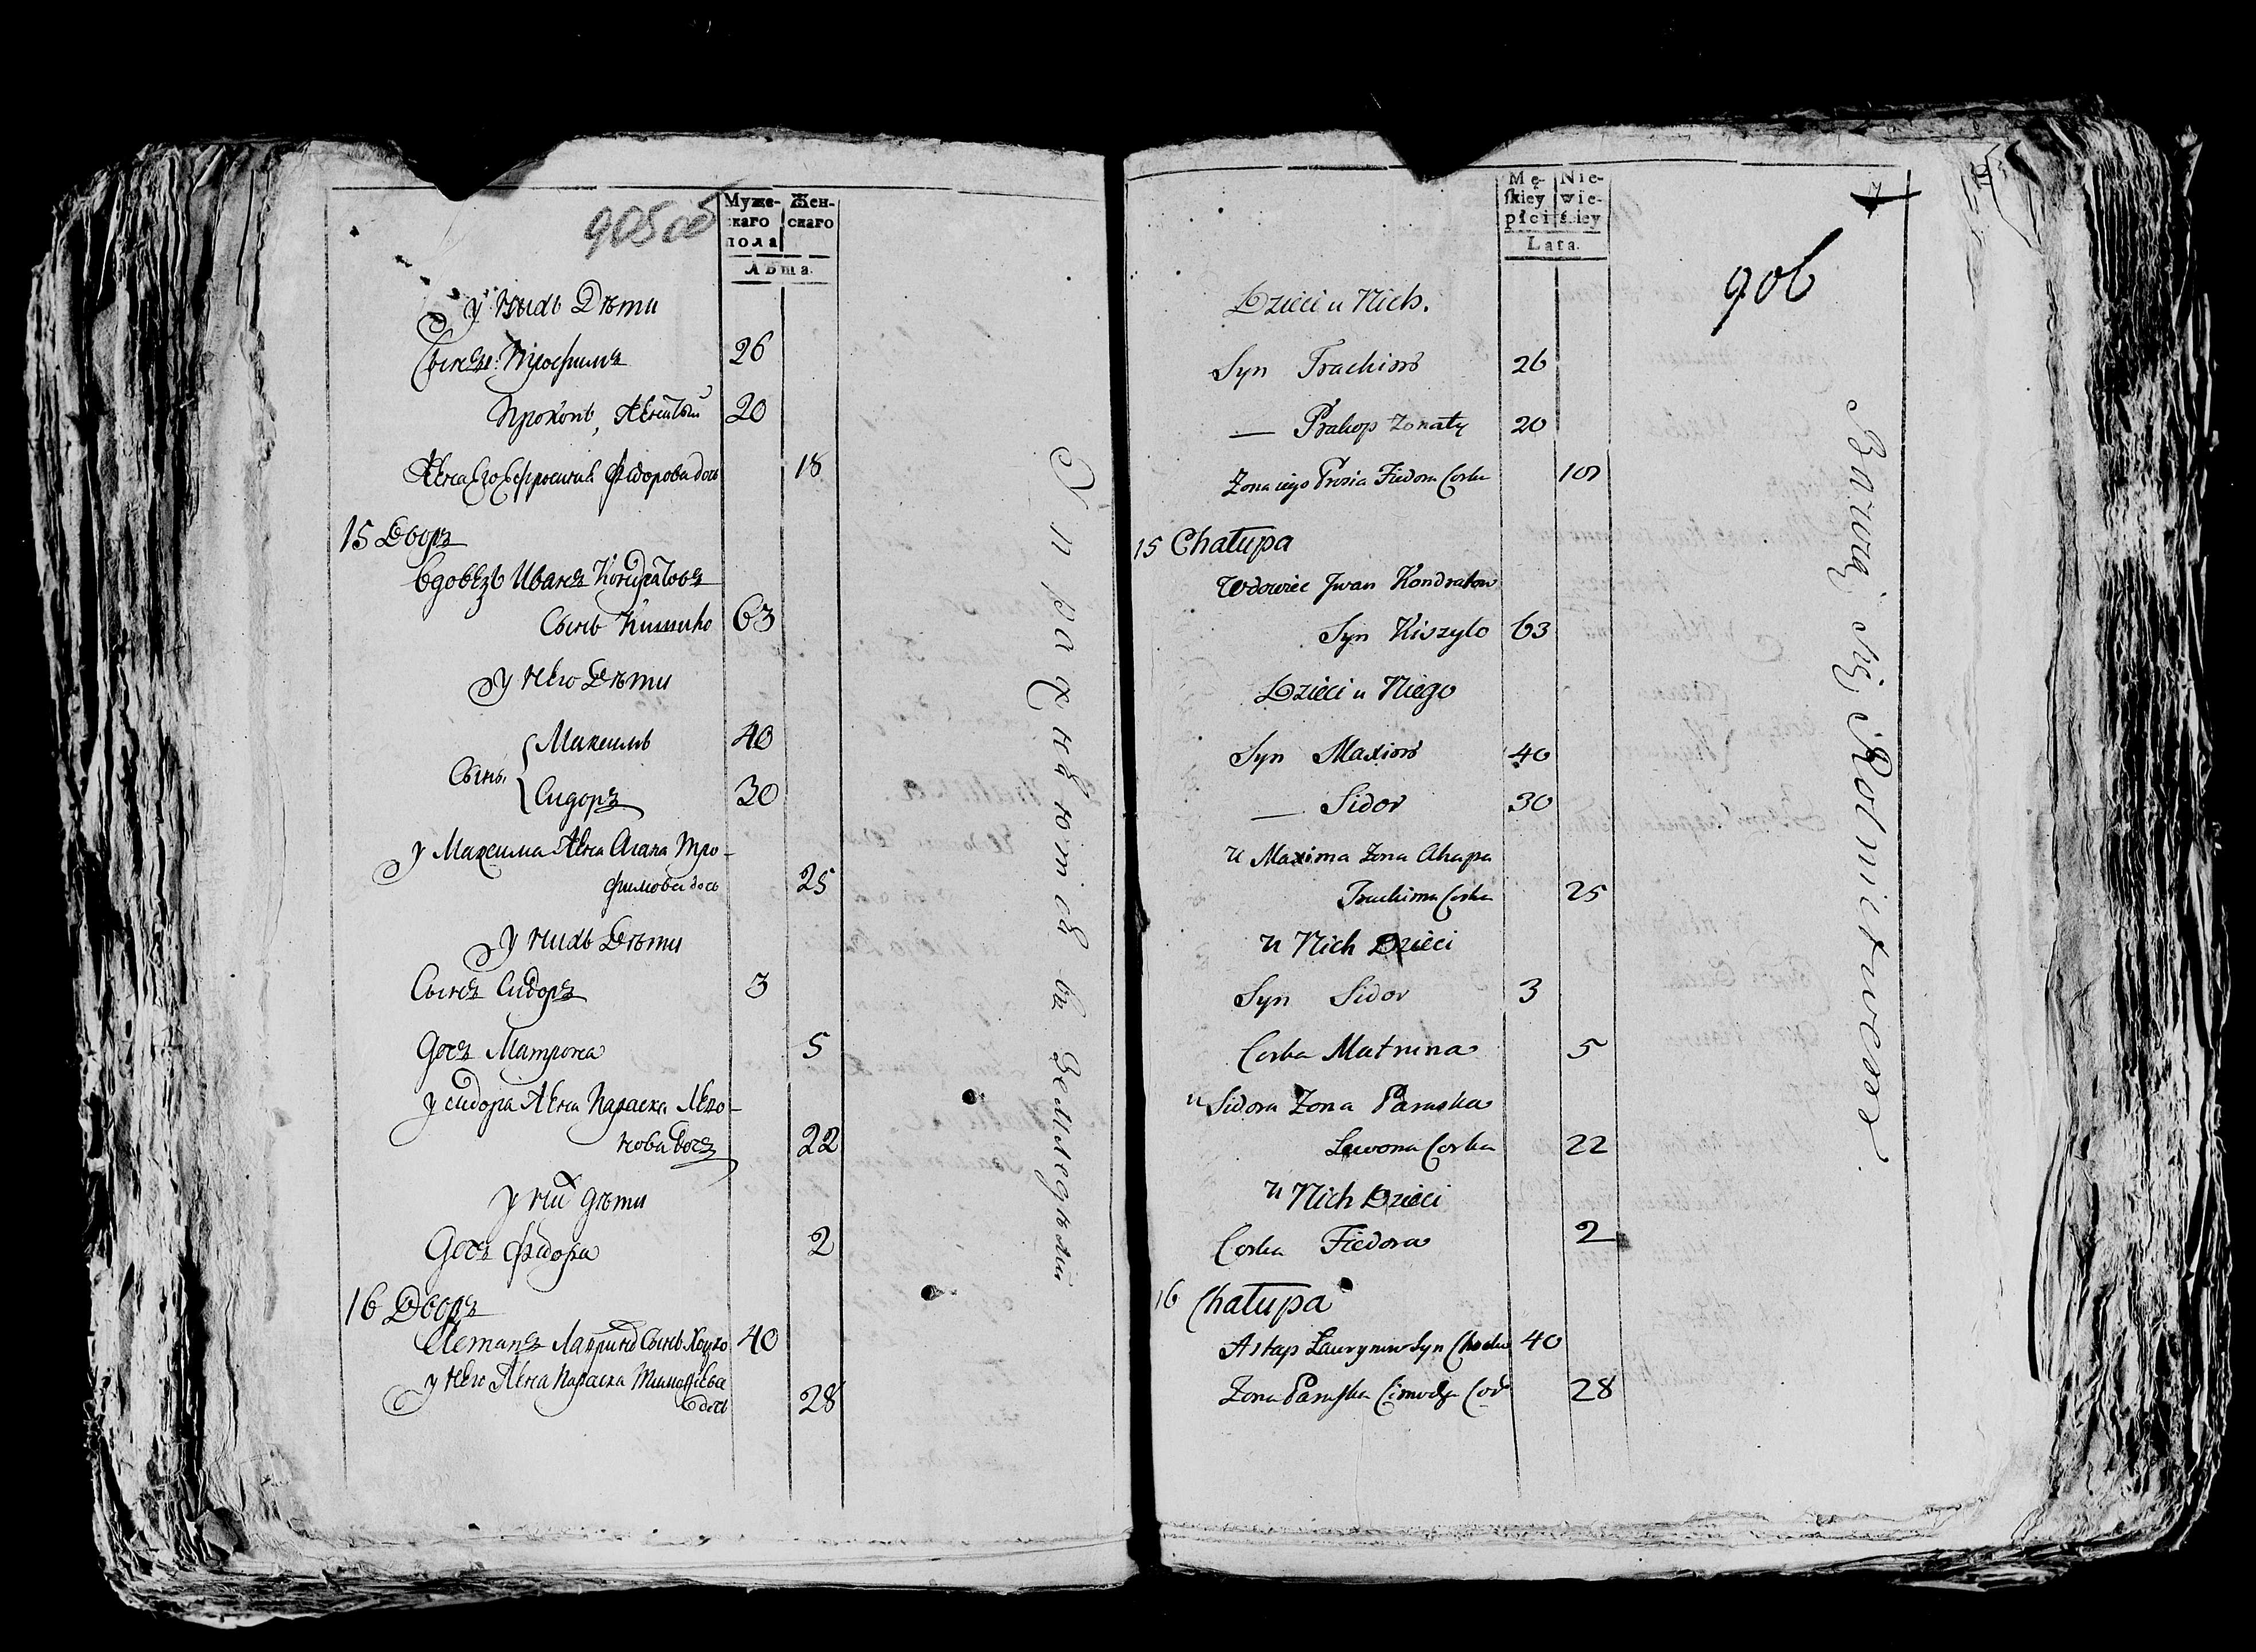 905 об
Муже- Жен-
скаго скаго
пола
Лѣта.
у нихъ Дѣти
Сынъ: Трофимъ 26
Прокопъ, женатый 20
Жена его Ефросинья Федорова дочь 18
15 Дворъ
Вдовецъ Иванъ Кондратовъ
Сынъ Кишило 63
у него Дѣти
Сынъ, Максимъ 40
Сидоръ 30
у Максима Жена Агапа Тро-
фимова дочь 25
у нихъ Дѣти
Сынъ Сидоръ 3
Дочь Матрона 5
у Сидора Жена Параска Лево-
нова дочь 22
у них дѣти
Дочь Федора 2
16 Дворъ
Астапъ Лавриновъ Сынъ 40
у него Жена Параска Тимофеева
дочь 28
Упражняются въ Земледѣлии
Mę- Nie-
skiey wie-
płci ściey
Lata.
906
Dzieci u Nich.
Syn Trachim 26
— Prakop Zonaty 20
Zona iego Prosia Fiedora Corka 18
15 Chałupa
Wdowiec Jwan Kondratow
Syn Kiszyło 63
Dzieci u Niego
Syn Maxim 40
— Sidor 30
u Maxima Zona Ahapa
Trachima Corka 25
u Nich Dzieci
Syn Sidor 3
Corka Matruna 5
u Sidora Zona Paraska
Lewona Corka 22
u Nich Dzieci
Corka Fiedora 2
16 Chałupa
Astap Łaurynow Syn 40
Zona Paraska Cimocha Cor 28
Bawią się Rolnictwem